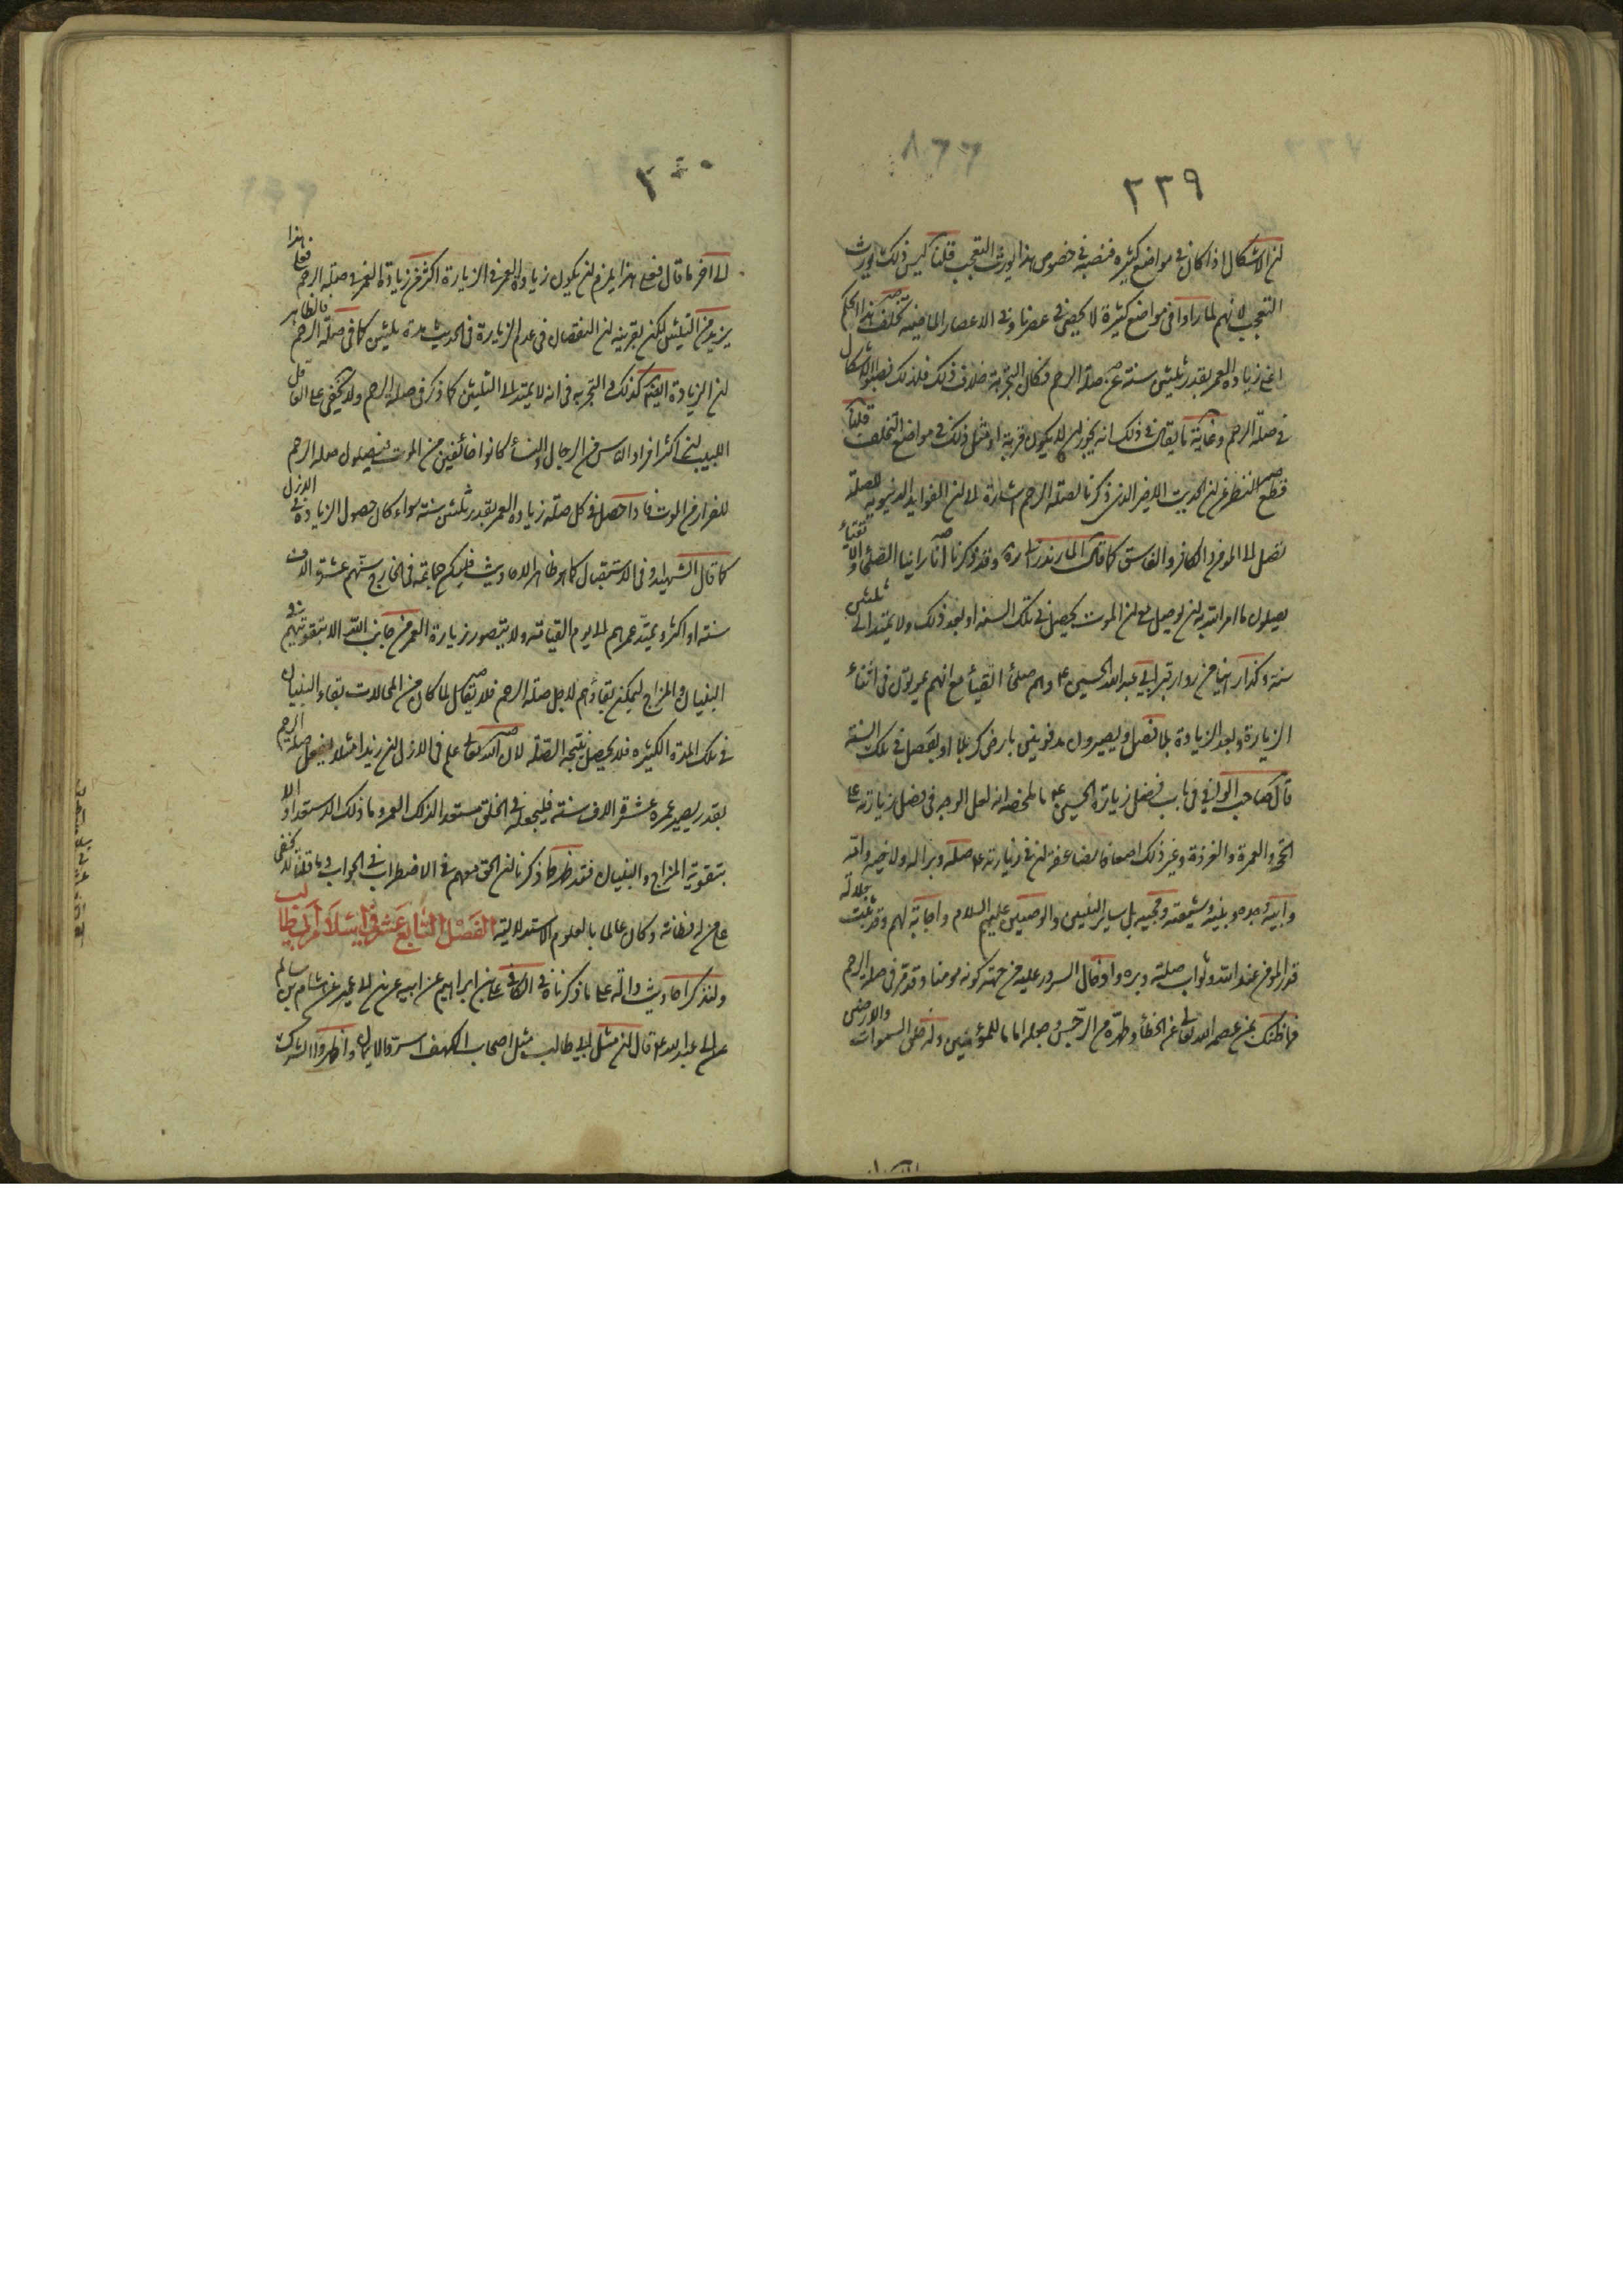 ٢٣٩
ان الاشكال اذا كان فى مواضع كثيرة فنصبه فى خصوص هذا يورث التعجب قلنا ليس ذلك يورث
التعجب لانهم لما راوا فى مواضع كثيرة لا يحصى فى عصرنا وفى الاعصار الماضية تخلف هذا الحكم
اعنى زيادة العمر بقدر ثلثين سنة عن صلة الرحم فكان التجربة خلاف ذلك فلذلك نصبوا الاشكال
فى صلة الرحم وغاية ما يقال فى ذلك انه يجوز ان لا يكون قربة او مثل ذلك فى مواضع التخلف قلنا
قطع النظر عن ان الحديث الاخير الذى ذكرنا لصلة الرحم اشارة الى ان الفوايد الدنيوية للصلة
تصل الى المؤمن والكافر والفاسق كما قال المازندرانى ره وقد ذكرنا انا راينا الصلحاء والاتقياء
يصلون ما امر الله به ان يوصل مع ان الموت يحصل فى تلك السنة او بعد ذلك ولا يمتد الى ثلثين
سنة وكذا راينا من زوار قبر ابى عبد الله الحسين ع وهم صلحاء اتقياء مع انهم يموتون فى اثناء
الزيارة وبعد الزيادة بلا فصل ويصيرون مدفونين بارض كربلا او يحصل فى تلك السنة
قال صاحب الوافى فى باب فضل زيارة الحسين ع ما ملخصه انه لعل الوجه فى فضل زيارته على
الحج والعمرة والغزوة وغير ذلك اضعافا مضاعفة ان فى زيارته ع صلة وبرا له ولاخيه وامه
وابيه وجده وبنيه وشيعته ومحبيه بل ساير النبيين والوصيين عليهم السلام واجابة لهم وقد ثبت جلالة
قدر المؤمن عند الله وثواب صلته وبره وادخال السرور عليه من جهة كونه مومنا وقد مر فى صلة الرحم
فما ظنك بمن عصمه الله تعالى عن الخطأ وطهره من الرجس وجعله اماما للمؤمنين وله خلق السموات والارضين
٢٤٠
الى اخر ما قال فعلى هذا يلزم ان يكون زيادة العمر فى الزيارة اكثر من زيادة العمر فى صلة الرحم فعلى هذا
يزيد من الثلثين لكن بقرينة ان النقصان فى عدم الزيارة فى الحديث مدة ثلثين كما فى صلة الرحم فالظاهر
ان الزيادة ايضا كذلك والتجربة فى انه لا يمتد الى الثلثين كما ذكر فى صلة الرحم ولا يخفى على العاقل
اللبيب ان اكثر افراد الناس من الرجال والنساء كانوا خائفين من الموت فيصلون صلة الرحم
للفرار من الموت فاذا حصل فى كل صلة زيادة العمر بقدر ثلثين سنة سواء كان حصول الزيادة فى الازل
كما قال الشهيد او فى الاستقبال كما هو ظاهر الاحاديث فليكن جماعة فى الخارج سنهم عشرة الاف
سنة او اكثر ويمتد عمرهم الى يوم القيامة ولا يتصور زيادة العمر من جانب الله الا بتقويتهم فى
البنيان والمزاج ليمكن بقاؤهم لاجل صلة الرحم فلا يقال لما كان من المحالات بقاء البنيان
فى تلك المدة الكثيرة فلا يحصل نتيجة الصلة لان الله تعالى علم فى الازل ان زيدا مثلا يفعل صلة الرحم
بقدر يصير عمره عشرة الاف سنة فيجعله فى الخلق مستعدا لذلك العمر وما ذلك الاستعداد الا
بتقوية المزاج والبنيان فقد ظهر مما ذكرنا ان الحق معهم فى الاضطراب فى الجواب وما قلنا لا يخفى
على من له فطانة وكان عالما بالعلوم الاستدلالية الفصل السابع عشر فى اسلام ابى طالب
ولنذكر احاديث دالة على ما ذكرناه فى الكافى على بن ابراهيم عن ابيه عن ابن ابى عمير عن هشام بن سالم
عن ابى عبد الله ع قال ان مثل ابى طالب مثل اصحاب الكهف اسروا الايمان واظهروا الشرك